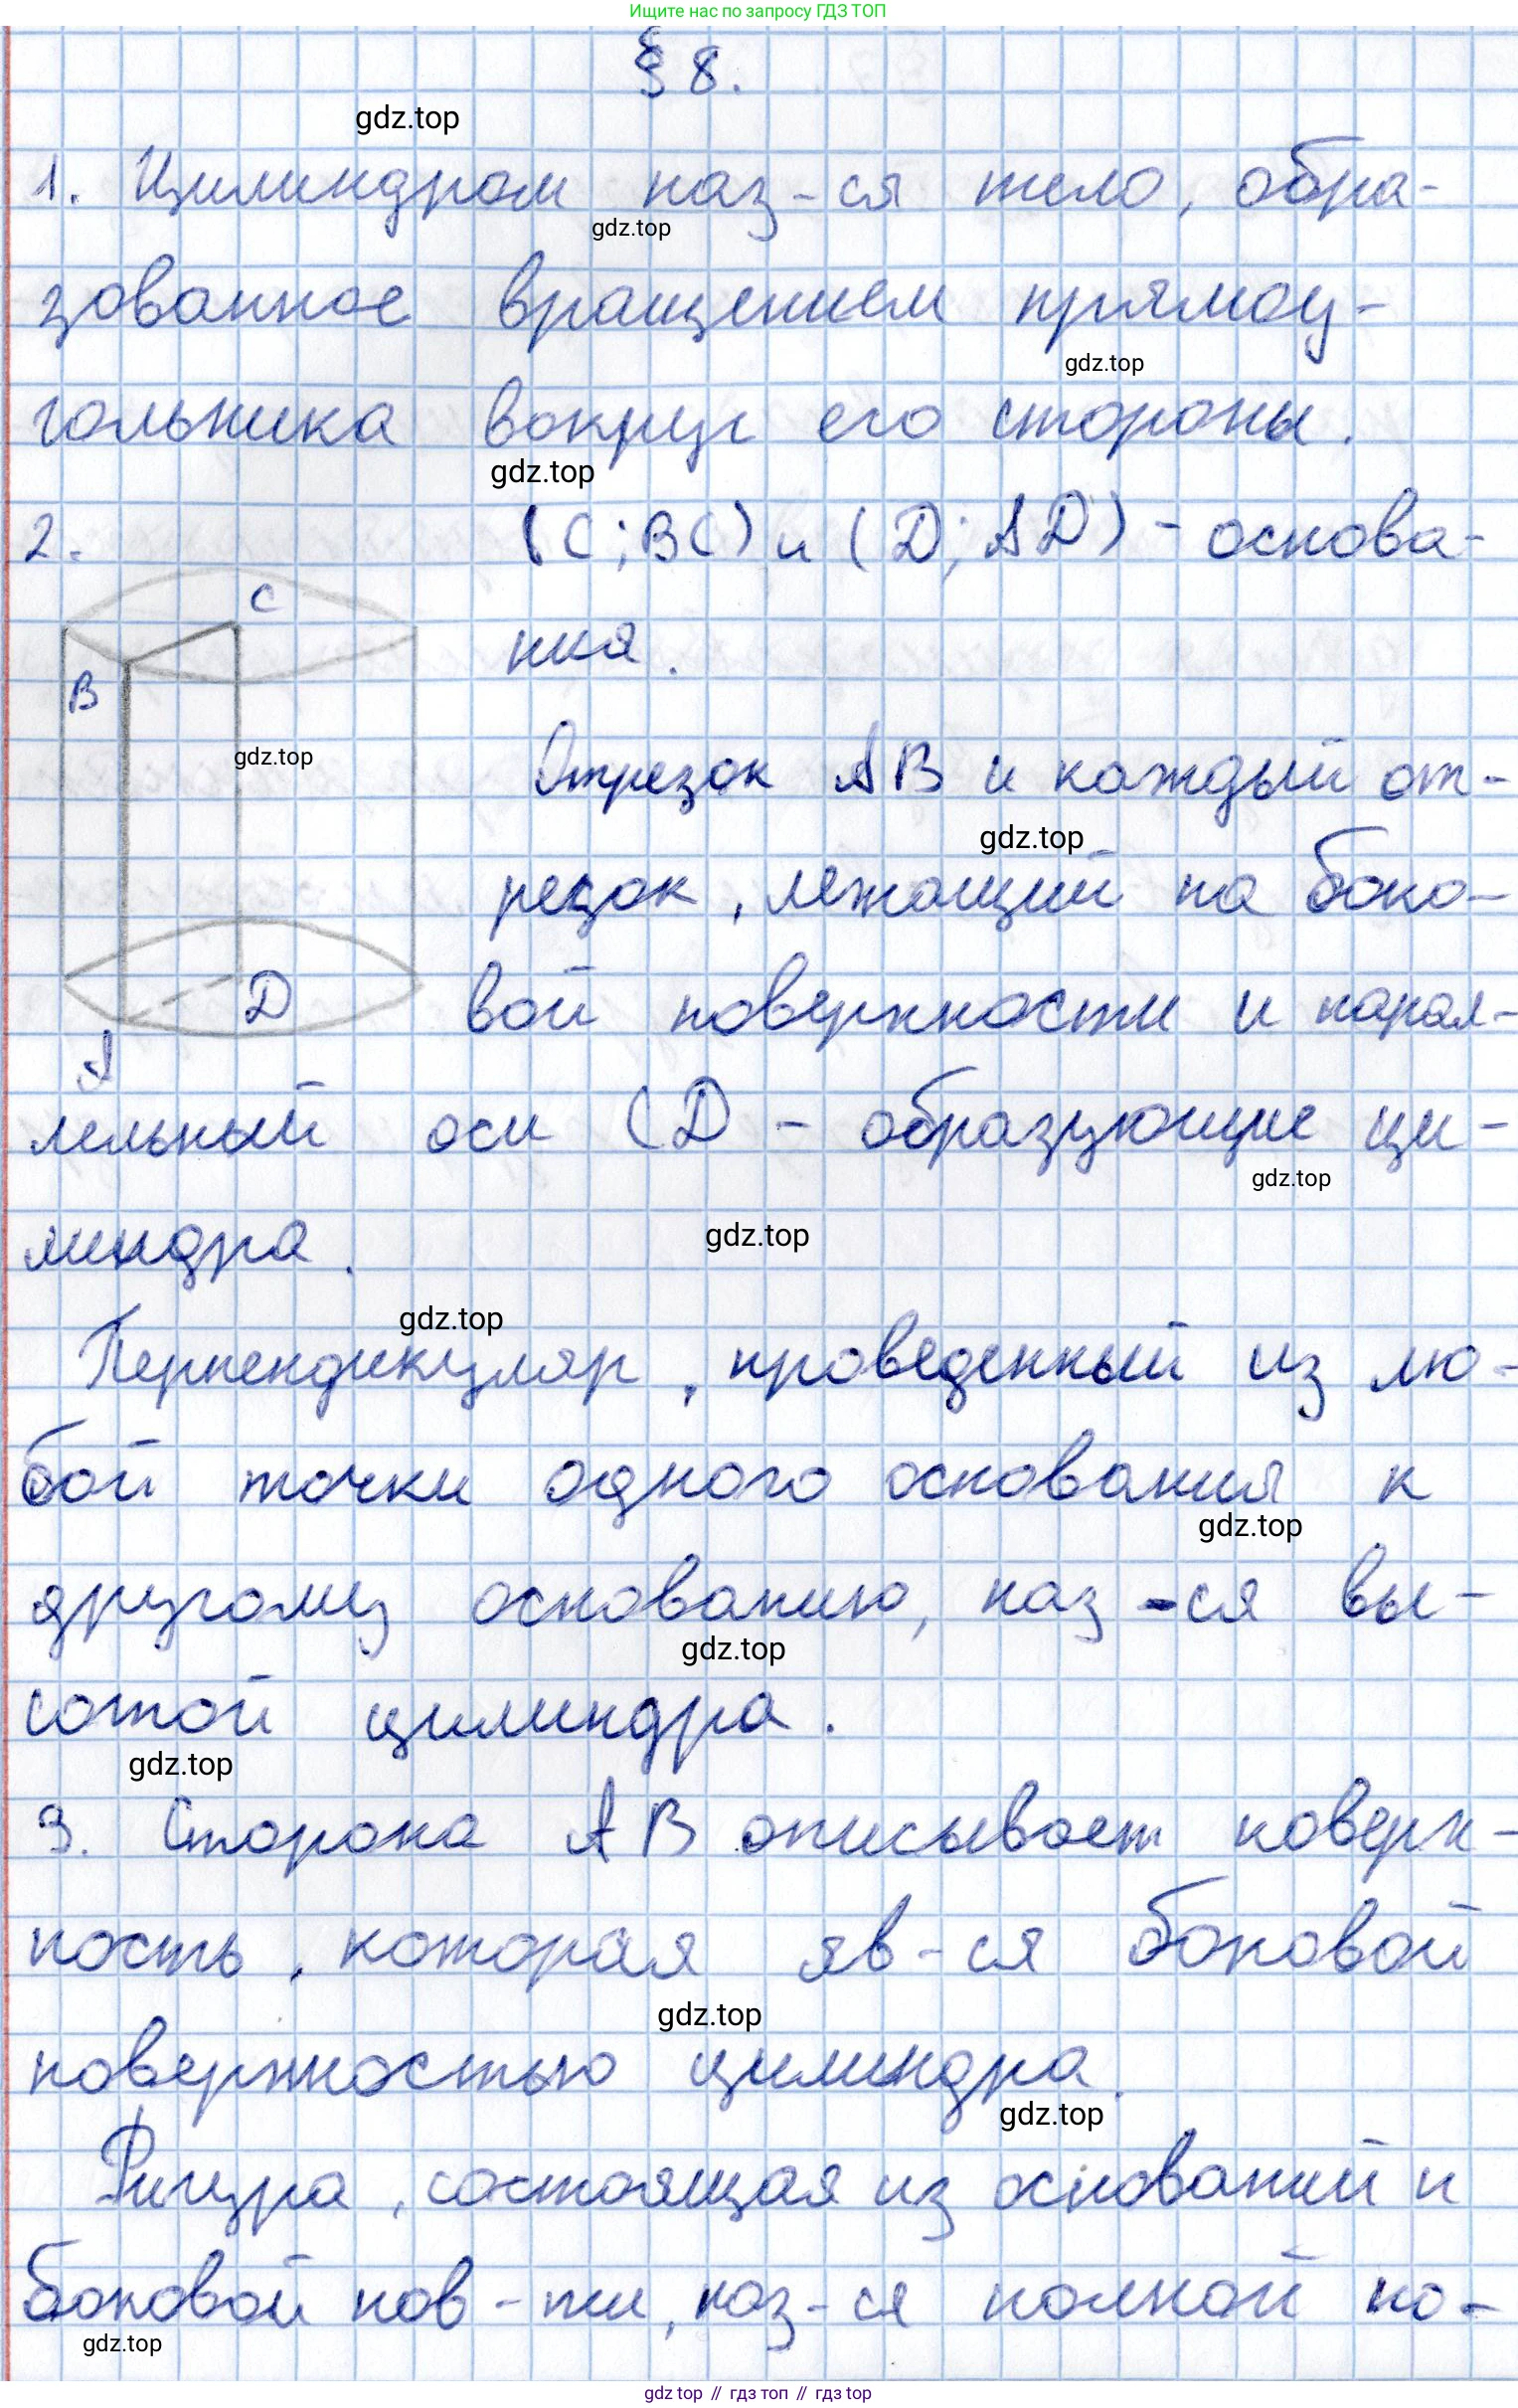 Ищите нас по запросу ГДЗ ТОП
§ 8.
gdz.top
1. Цилиндром наз-ся тело, обра-
gdz.top
зованное вращением прямоу-
gdz.top
гольника вокруг его стороны.
gdz.top
2. (C; BC) и (D; AD) - основа-
C
ния.
B
gdz.top
Отрезок AB и каждый от-
gdz.top
резок, лежащий на боко-
D
вой поверхности и парал-
A
лельный оси CD - образующие ци-
gdz.top
линдра.
gdz.top
gdz.top
Перпендикуляр, проведенный из лю-
бой точки одного основания к
gdz.top
другому основанию, наз-ся вы-
gdz.top
сотой цилиндра.
gdz.top
3. Сторона AB описывает поверх-
ность, которая яв-ся боковой
gdz.top
поверхностью цилиндра.
gdz.top
Фигура, состоящая из оснований и
боковой пов-ти, наз-ся полной по-
gdz.top
gdz top // гдз топ // гдз top